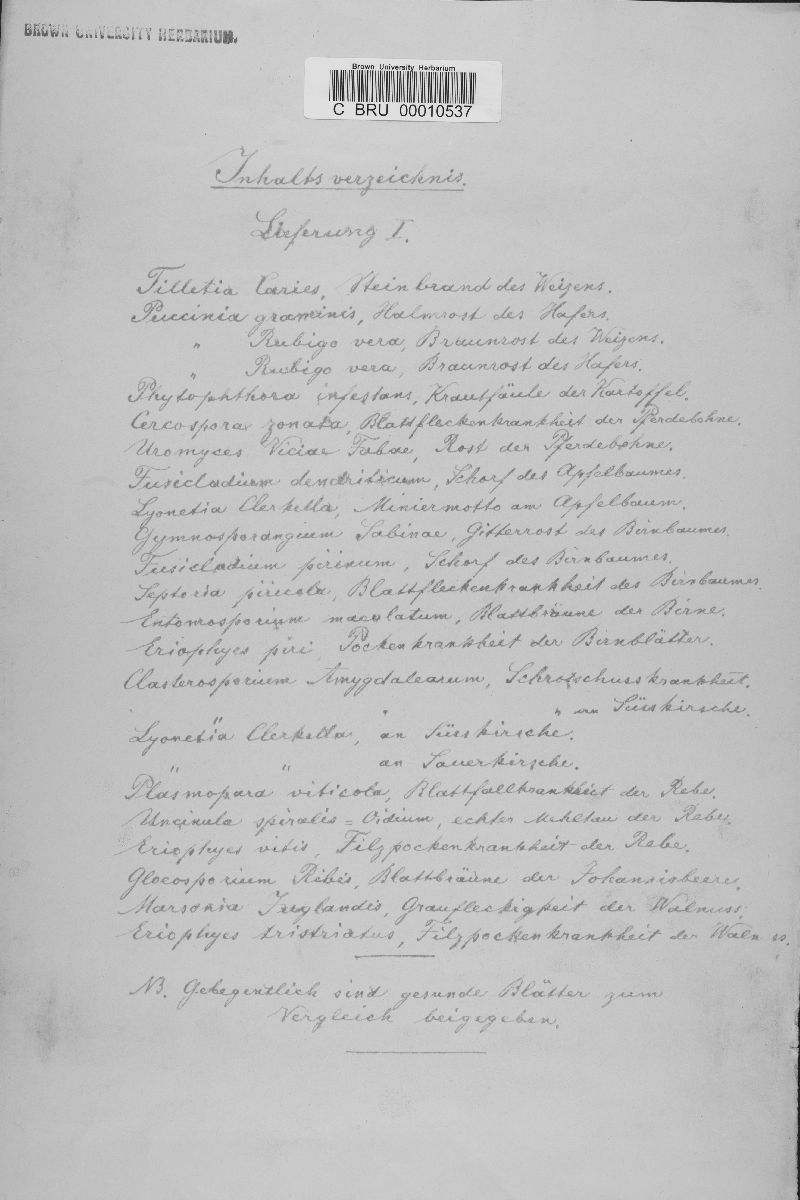 BROWN UNIVERSITY HERBARIUM.
Brown University Herbarium
C BRU 00010537
Inhaltsverzeichnis.
Lieferung I.
Tilletia Caries, Steinbrand des Weizens.
Puccinia graminis, Halmrost des Hafers.
" Rubigo vera, Braunrost des Weizens.
" Rubigo vera, Braunrost des Hafers.
Phytophthora infestans, Krautfäule der Kartoffel.
Cercospora zonata, Blattfleckenkrankheit der Pferdebohne.
Uromyces Viciae Fabae, Rost der Pferdebohne.
Fusicladium dendriticum, Schorf des Apfelbaumes.
Lyonetia Clerkella, Miniermotte am Apfelbaum.
Gymnosporangium Sabinae, Gitterrost des Birnbaumes.
Fusicladium pirinum, Schorf des Birnbaumes.
Septoria piricola, Blattfleckenkrankheit des Birnbaumes.
Entomosporium maculatum, Blattbräune der Birne.
Eriophyes piri, Pockenkrankheit der Birnblätter.
Clasterosporium Amygdalearum, Schrotschusskrankheit.
" " " an Süsskirsche.
Lyonetia Clerkella, an Süsskirsche.
" " an Sauerkirsche.
Plasmopara viticola, Blattfallkrankheit der Rebe.
Uncinula spiralis = Oidium, echter Mehltau der Rebe.
Eriophyes vitis, Filzpockenkrankheit der Rebe.
Gloeosporium Ribis, Blattbräune der Johannisbeere.
Marsonia Juglandis, Graufleckigkeit der Walnuss.
Eriophyes tristriatus, Filzpockenkrankheit der Walnuss.
NB. Gelegentlich sind gesunde Blätter zum
Vergleich beigegeben.